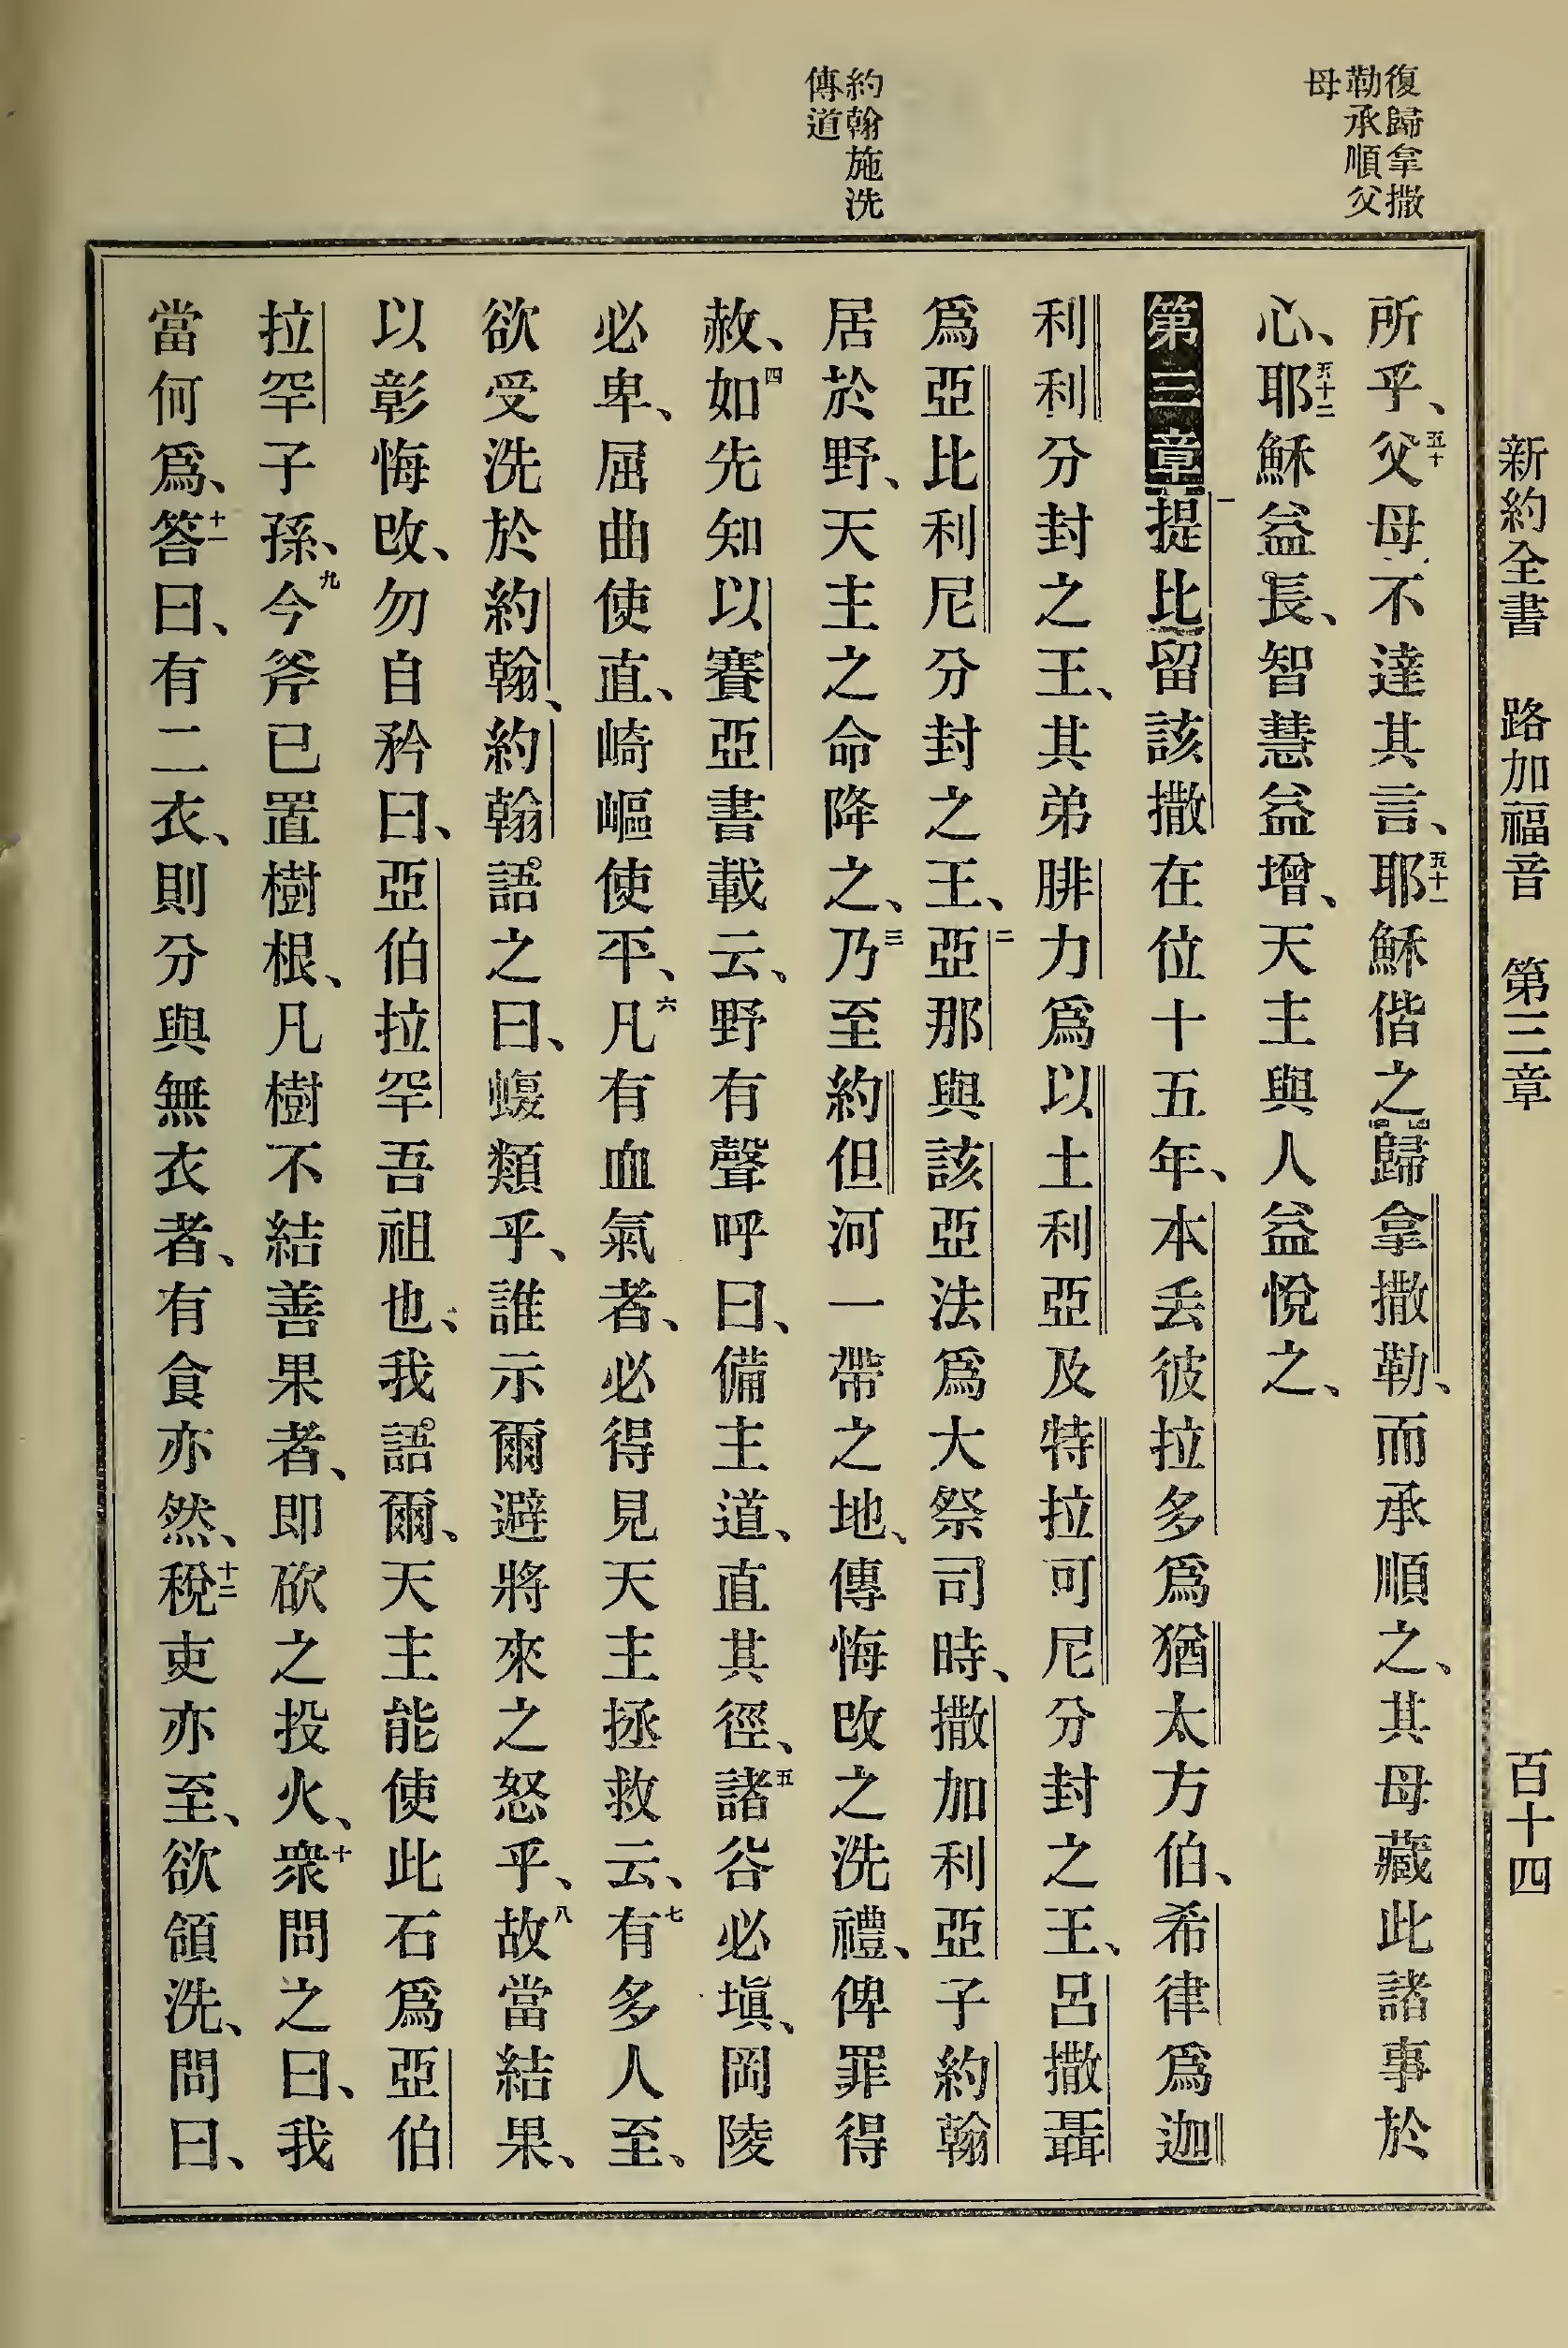 新約全書 路加福音 第三章 百十四
復歸拿撒
勒承順父
母
約翰施洗
傳道
所乎、五十父母不達其言、五十一耶穌偕之歸拿撒勒、而承順之、其母藏此諸事於
心、五十二耶穌益長、智慧益增、天主與人益悅之、
第三章一提比留該撒在位十五年、本丢彼拉多爲猶太方伯、希律爲迦
利利分封之王、其弟腓力爲以土利亞及特拉可尼分封之王、呂撒聶
爲亞比利尼分封之王、二亞那與該亞法爲大祭司時、撒加利亞子約翰
居於野、天主之命降之、三乃至約但河一帶之地、傳悔改之洗禮、俾罪得
赦、四如先知以賽亞書載云、野有聲呼曰、備主道、直其徑、五諸谷必塡、岡陵
必卑、屈曲使直、崎嶇使平、六凡有血氣者、必得見天主拯救云、七有多人至、
欲受洗於約翰、約翰語之曰、蝮類乎、誰示爾避將來之怒乎、八故當結果、
以彰悔改、勿自矜曰、亞伯拉罕吾祖也、我語爾、天主能使此石爲亞伯
拉罕子孫、九今斧已置樹根、凡樹不結善果者、即砍之投火、十衆問之曰、我
當何爲、十一答曰、有二衣、則分與無衣者、有食亦然、十二稅吏亦至、欲領洗、問曰、